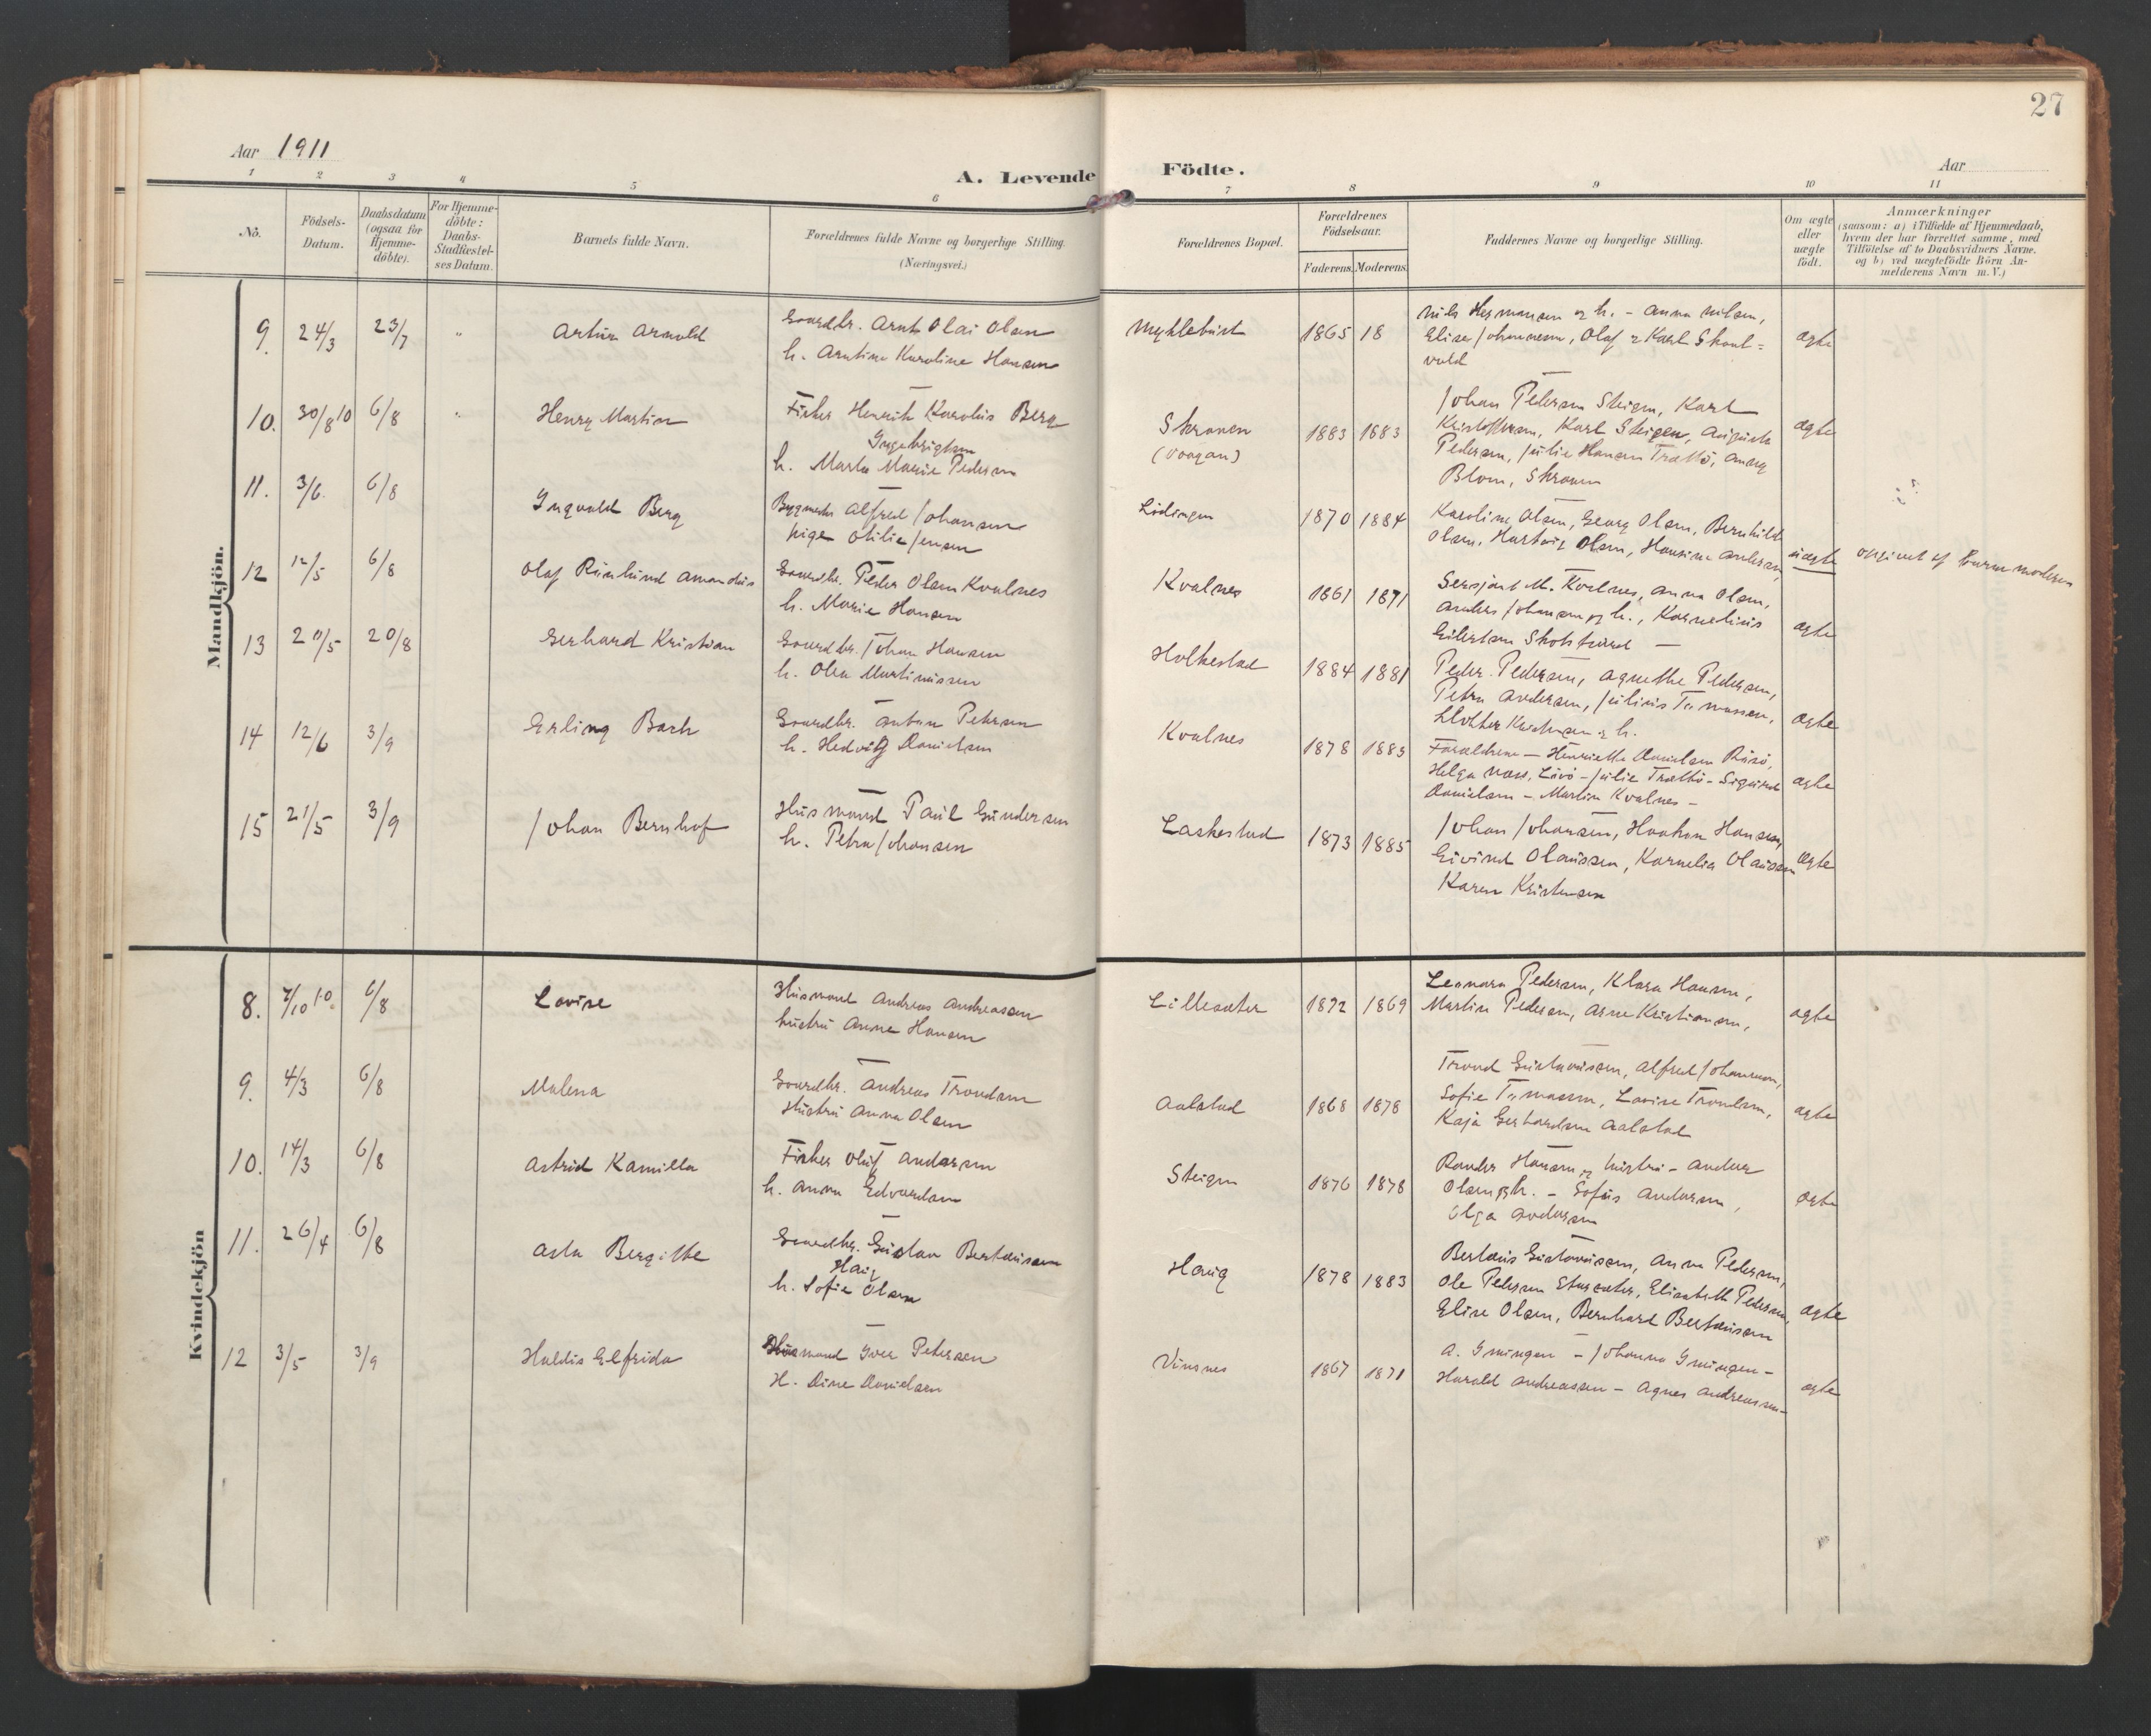 27
Aar 1911
Aar
A. Levende Födte.
1 2 3 4 5 6 7 8 9 10 11
No.
Födsels-
Datum.
Daabsdatum
(ogsaa for
Hjemme-
döbte).
For Hjemme-
döbte:
Daabs-
Stadfæstel-
ses Datum.
Barnets fulde Navn.
Forældrenes fulde Navne og borgerlige Stilling.
(Næringsvei.)
Forældrenes Bopæl.
Forældrenes
Födselsaar.
Faderens. Moderens.
Faddernes Navne og borgerlige Stilling.
Om ægte
eller
uægte
födt.
Anmærkninger
(saasom: a) i Tilfælde af Hjemmedaab,
hvem der har forrettet samme, med
Tilföielse af to Daabsvidners Navne.
og b) ved uægtefödte Börn An-
melderens Navn m. V.)
Mandkjön.
9. 24/3 23/7 " Artur Arnold
Gaardbr. Arnt Olai Olsen
h. Arntine Karoline Hansen
Myklebust 1865 18
Nils Hermansen og h. - Anna Nilsen,
Elise Johannesen, Olaf & Karl Skaul=
vold
ægte
10. 30/8 10 6/8 " Henry Martin
Fisker Henrik Karolius Berg
Ingebrigtsen
h. Marta Marie Pedersen
Skroven
(Vaagan)
1883 1883
Johan Pedersen Steigen, Karl
Kristoffersen, Karl Steigen, Augusta
Pedersen, Julie Hansen Trættö, Anny
Blom, Skroven
ægte
11. 3/6. 6/8 Ingvald Berg
Bygmester Alfred Johansen
pige Otilie Jensen
Lödingen 1870 1884
Karoline Olsen, Georg Olsen, Bernhild
Olsen, Hartvig Olsen, Hansine Andersen,
uægte
opgivet af barnemoderen
12 12/5 6/8 Olaf Rünlünd Amandus
Gaardbr. Peder Olsen Kvalnes
h. Marie Hansen
Kvalnes 1861 1871
Sersjant M. Kvalnes, Anna Olsen,
Anders Johansen og h., Kornelius
Eilertsen Skotstind -
ægte
13 20/5 20/8 Gerhard Kristian
Gaardbr. Johan Hansen
h. Olea Martinussen
Holkestad 1884 1881
Peder Pedersen, Agnethe Pedersen,
Petra Andersen, Julius Tomassen,
Kristensen & h.
ægte
14 12/6 3/9 Erling Bach
Gaardbr. Anton Petersen
h. Hedvig Danielsen
Kvalnes 1878 1885
Forældrene - Henriette Danielsen Rüsö,
Helga Næss, Lövö - Julie Trættö - Sigurd
Danielsen - Martin Kvalnes -
ægte
15 21/5 3/9 Johan Bernhof
Husmand Paul Gundersen
h. Petra Johansen
Laskestad 1873 1885
Johan Johansen, Haakon Hansen,
Eivind Olaussen, Kornelia Olaussen
Karen Kristensen
ægte
Kvindekjön
8. 7/10 10. 6/8 Lovise
Husmand Andreas Andreasen
hustru Anne Hansen
Lillesæter 1872 1869
Leonora Pedersen, Klara Hansen,
Martin Pedersen, Arne Kristiansen,
ægte
9. 4/3 6/8 Malena
Gaardbr. Andreas Trondsen
Hustru Anna Olsen
Aalstad 1868 1878
Trond Gustavussen, Alfred Johannesen,
Sofie Tomassen, Lovise Trondsen,
Kaja Gerhardsen Aalstad
ægte
10. 14/3 6/8 Astrid Kamilla
Fisker Oluf Andersen
h. Anna Edvardsen
Steigen 1876 1878
Rander Hansen og hustru - Anders
Olsen og h. - Sofus Andersen,
Olga Andersen
ægte
11. 26/4 6/8 Asta Bergitte
Gaardbr. Gustav Berteussen
Haug
h. Sofie Olsen
Haug 1878 1883
Berteus Gustavussen, Anna Pedersen,
Ole Pedersen Storsæter, Elisabeth Pedersen,
Elise Olsen, Bernhard Berteussen
ægte
12 3/5 3/9 Haldis Elfrida
Husmand Iver Petersen
H. Dine Danielsen
Vinsnes 1867 1871
A. Gmingen - Johanna Gmingen -
Harald Andreassen - Agnes Andreassen -
ægte